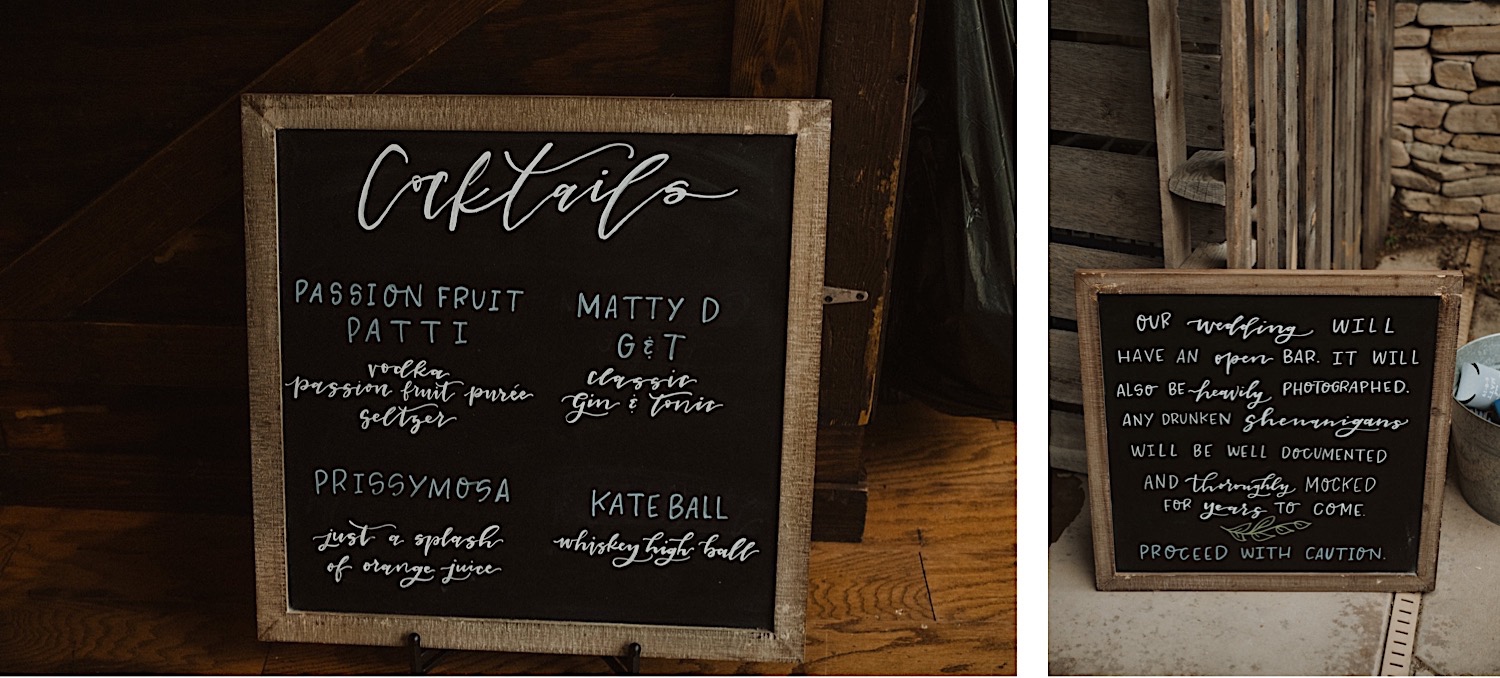 Cocktails
PASSION FRUIT
PATTI
vodka
passion fruit purée
seltzer
MATTY D
G & T
classic
Gin & Tonic
PRISSYMOSA
just a splash
of orange juice
KATE BALL
whiskey high ball
OUR wedding WILL
HAVE AN open BAR. IT WILL
ALSO BE heavily PHOTOGRAPHED.
ANY DRUNKEN shenanigans
WILL BE WELL DOCUMENTED
AND thoroughly MOCKED
FOR years TO COME.
PROCEED WITH CAUTION.